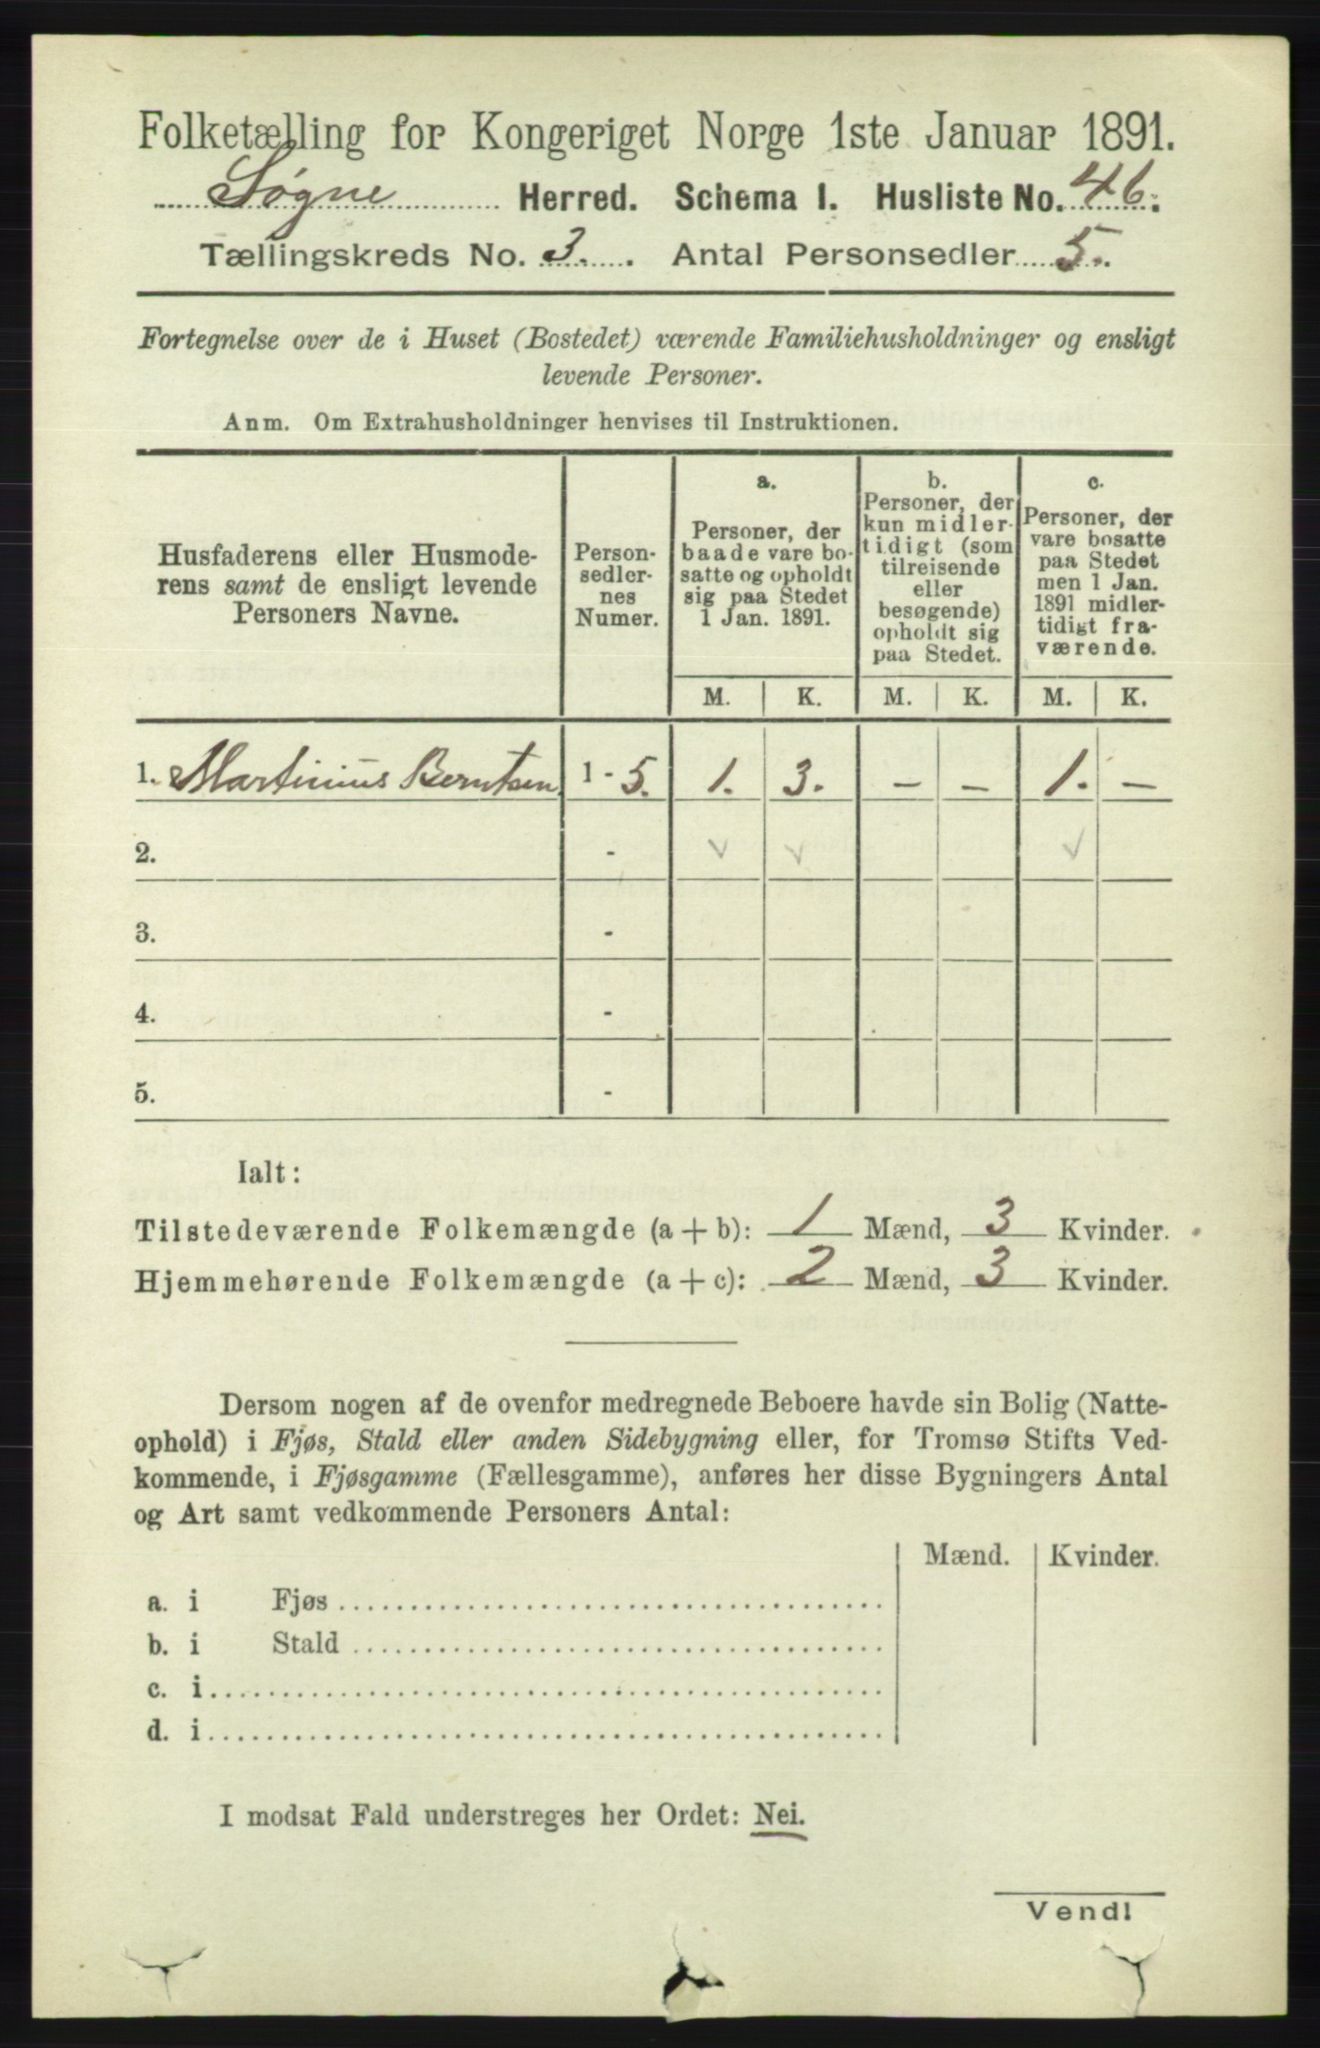 Folketælling for Kongeriget Norge 1ste Januar 1891.
Søgne Herred. Schema 1. Husliste No. 46.
Tællingskreds No. 3. Antal Personsedler 5.
Fortegnelse over de i Huset (Bostedet) værende Familiehusholdninger og ensligt
levende Personer.
Anm. Om Extrahusholdninger henvises til Instruktionen.
Husfaderens eller Husmode-
rens samt de ensligt levende
Personers Navne.
Person-
sedler-
nes
Numer.
a.
Personer, der
baade vare bo-
satte og opholdt
sig paa Stedet
1 Jan. 1891.
b.
Personer, der
kun midler-
tidigt (som
tilreisende
eller
besøgende)
opholdt sig
paa Stedet.
c.
Personer, der
vare bosatte
paa Stedet
men 1 Jan.
1891 midler-
tidigt fra-
værende.
M. K. M. K. M. K.
1. Martinius Berntsen 1 - 5. 1. 3. - - 1. -
2. - ✓ ✓ ✓
3. -
4. -
5. -
Ialt:
Tilstedeværende Folkemængde (a + b): 1 Mænd, 3 Kvinder.
Hjemmehørende Folkemængde (a + c): 2 Mænd, 3 Kvinder.
Dersom nogen af de ovenfor medregnede Beboere havde sin Bolig (Natte-
ophold) i Fjøs, Stald eller anden Sidebygning eller, for Tromsø Stifts Ved-
kommende, i Fjøsgamme (Fællesgamme), anføres her disse Bygningers Antal
og Art samt vedkommende Personers Antal:
Mænd. Kvinder.
a. i Fjøs
b. i Stald
c. i
d. i
I modsat Fald understreges her Ordet: Nei.
Vend!